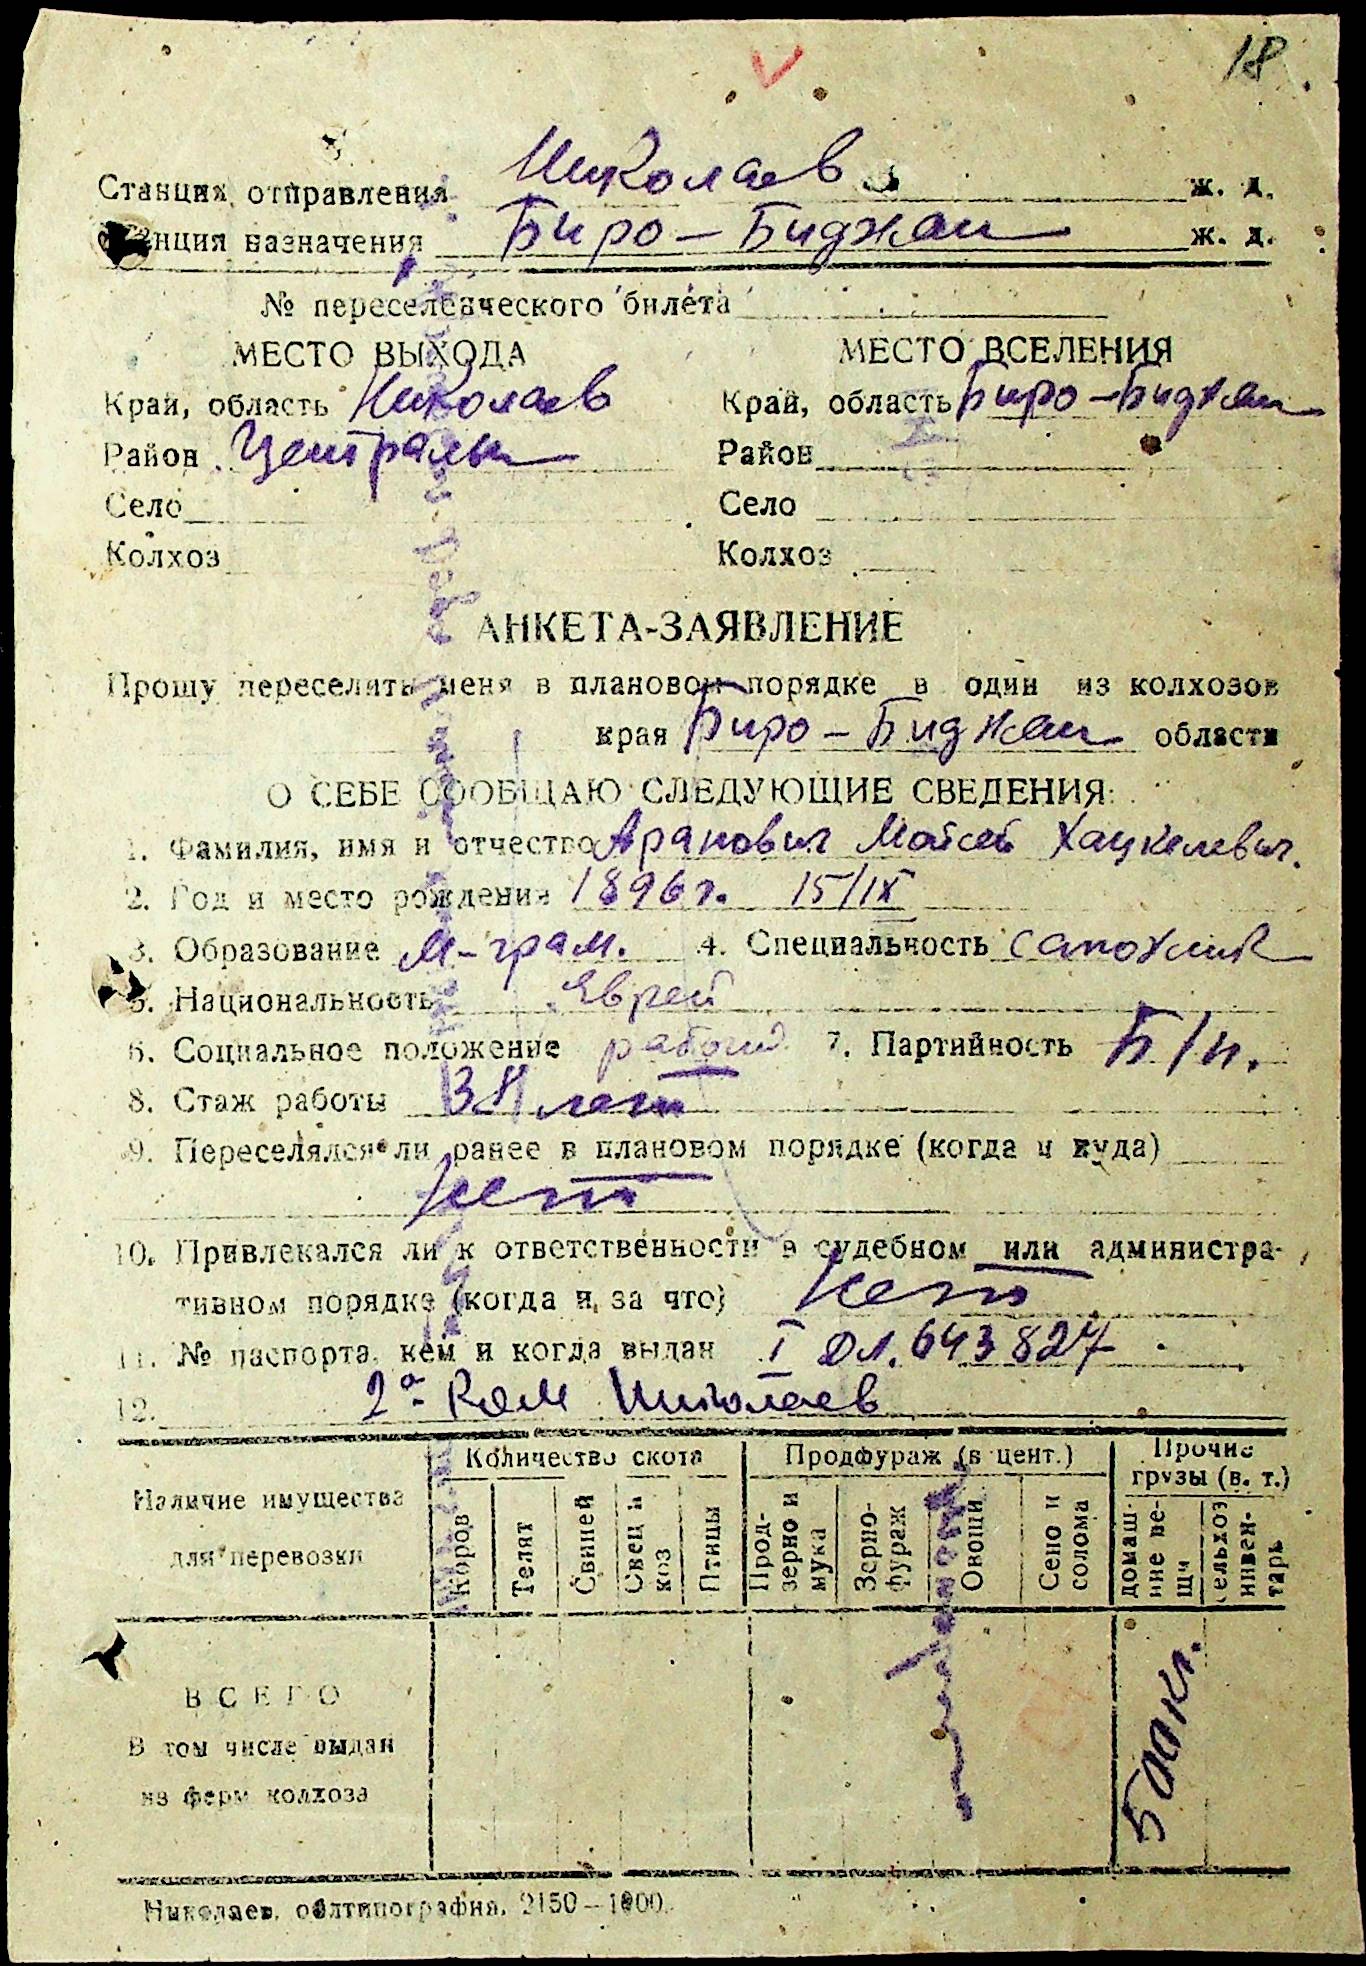 18
Станция отправления Николаев ж. д.
Станция назначения Биро-Биджан ж. д.
№ переселенческого билета
МЕСТО ВЫХОДА МЕСТО ВСЕЛЕНИЯ
Край, область Николаев Край, область Биро-Биджан
Район Централь Район
Село Село
Колхоз Колхоз
АНКЕТА-ЗАЯВЛЕНИЕ
Прошу переселить меня в плановом порядке в один из колхозов
края Биро-Биджан области
О СЕБЕ СООБЩАЮ СЛЕДУЮЩИЕ СВЕДЕНИЯ:
1. Фамилия, имя и отчество Аранович Мойсей Хацкелевич.
2. Год и место рождения 1896 г. 15/IX
3. Образование м-грам. 4. Специальность сапожник
5. Национальность Еврей
6. Социальное положение рабочий 7. Партийность Б/п.
8. Стаж работы 38 лет
9. Переселялся ли ранее в плановом порядке (когда и куда)
нет
10. Привлекался ли к ответственности в судебном или администра-
тивном порядке (когда и за что) нет
11. № паспорта, кем и когда выдан I ол. 643827
12. 2а Ком Николаев
Наличие имущества
для перевозки
Количество скота Продфураж (в цент.) Прочие
грузы (в. т.)
Коров Телят Свиней Овец и коз Птицы Прод-зерно и мука Зерно-фураж Овощи Сено и солома домаш-ние ве-щи сельхоз инвен-тарь
ВСЕГО
В том числе выдан
из ферм колхоза
500 кг.
Николаев, облтипография, 2150—1000.